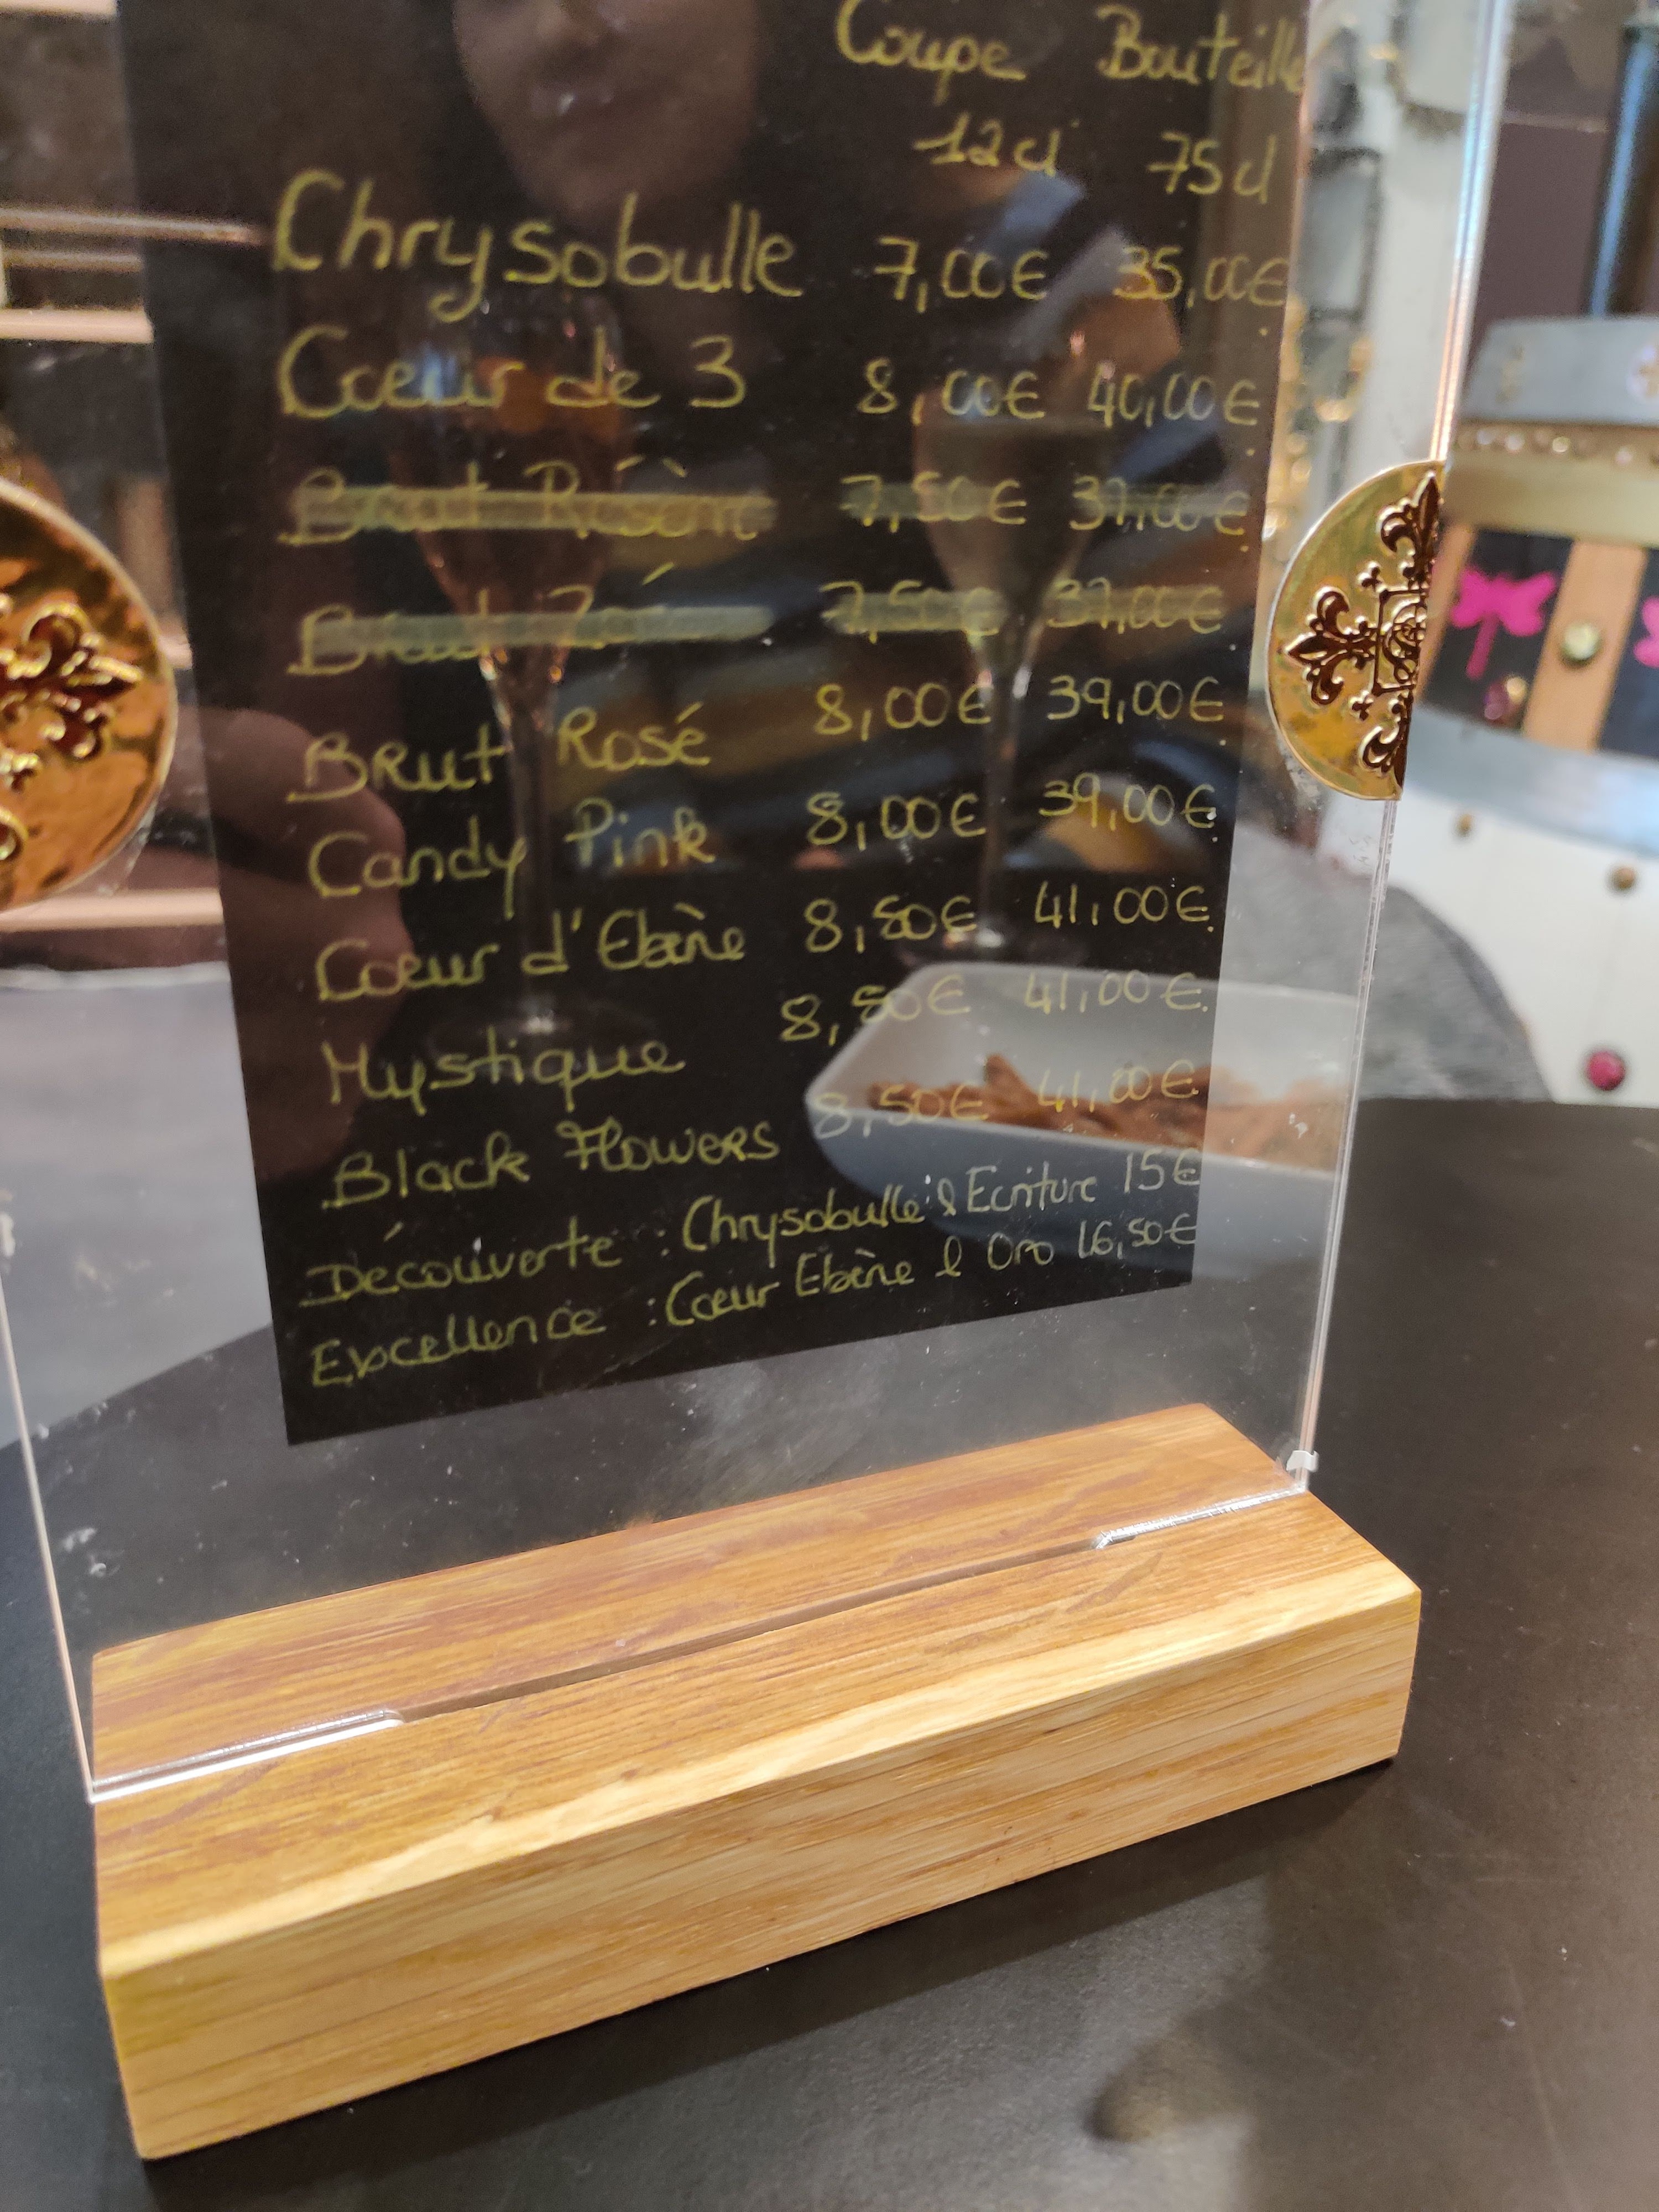 Coupe Bouteille
12cl 75cl
Chrysobulle 7,00€ 35,00€
Cœur de 3 8,00€ 40,00€
Brut Réserve 7,50€ 37,00€
Brut Zéro 7,50€ 37,00€
Brut Rosé 8,00€ 39,00€
Candy Pink 8,00€ 39,00€
Cœur d'Ebène 8,50€ 41,00€
Mystique 8,50€ 41,00€
Black Flowers 8,50€ 41,00€
Découverte : Chrysobulle & Ecriture 15€
Excellence : Cœur Ebène & Oro 16,50€